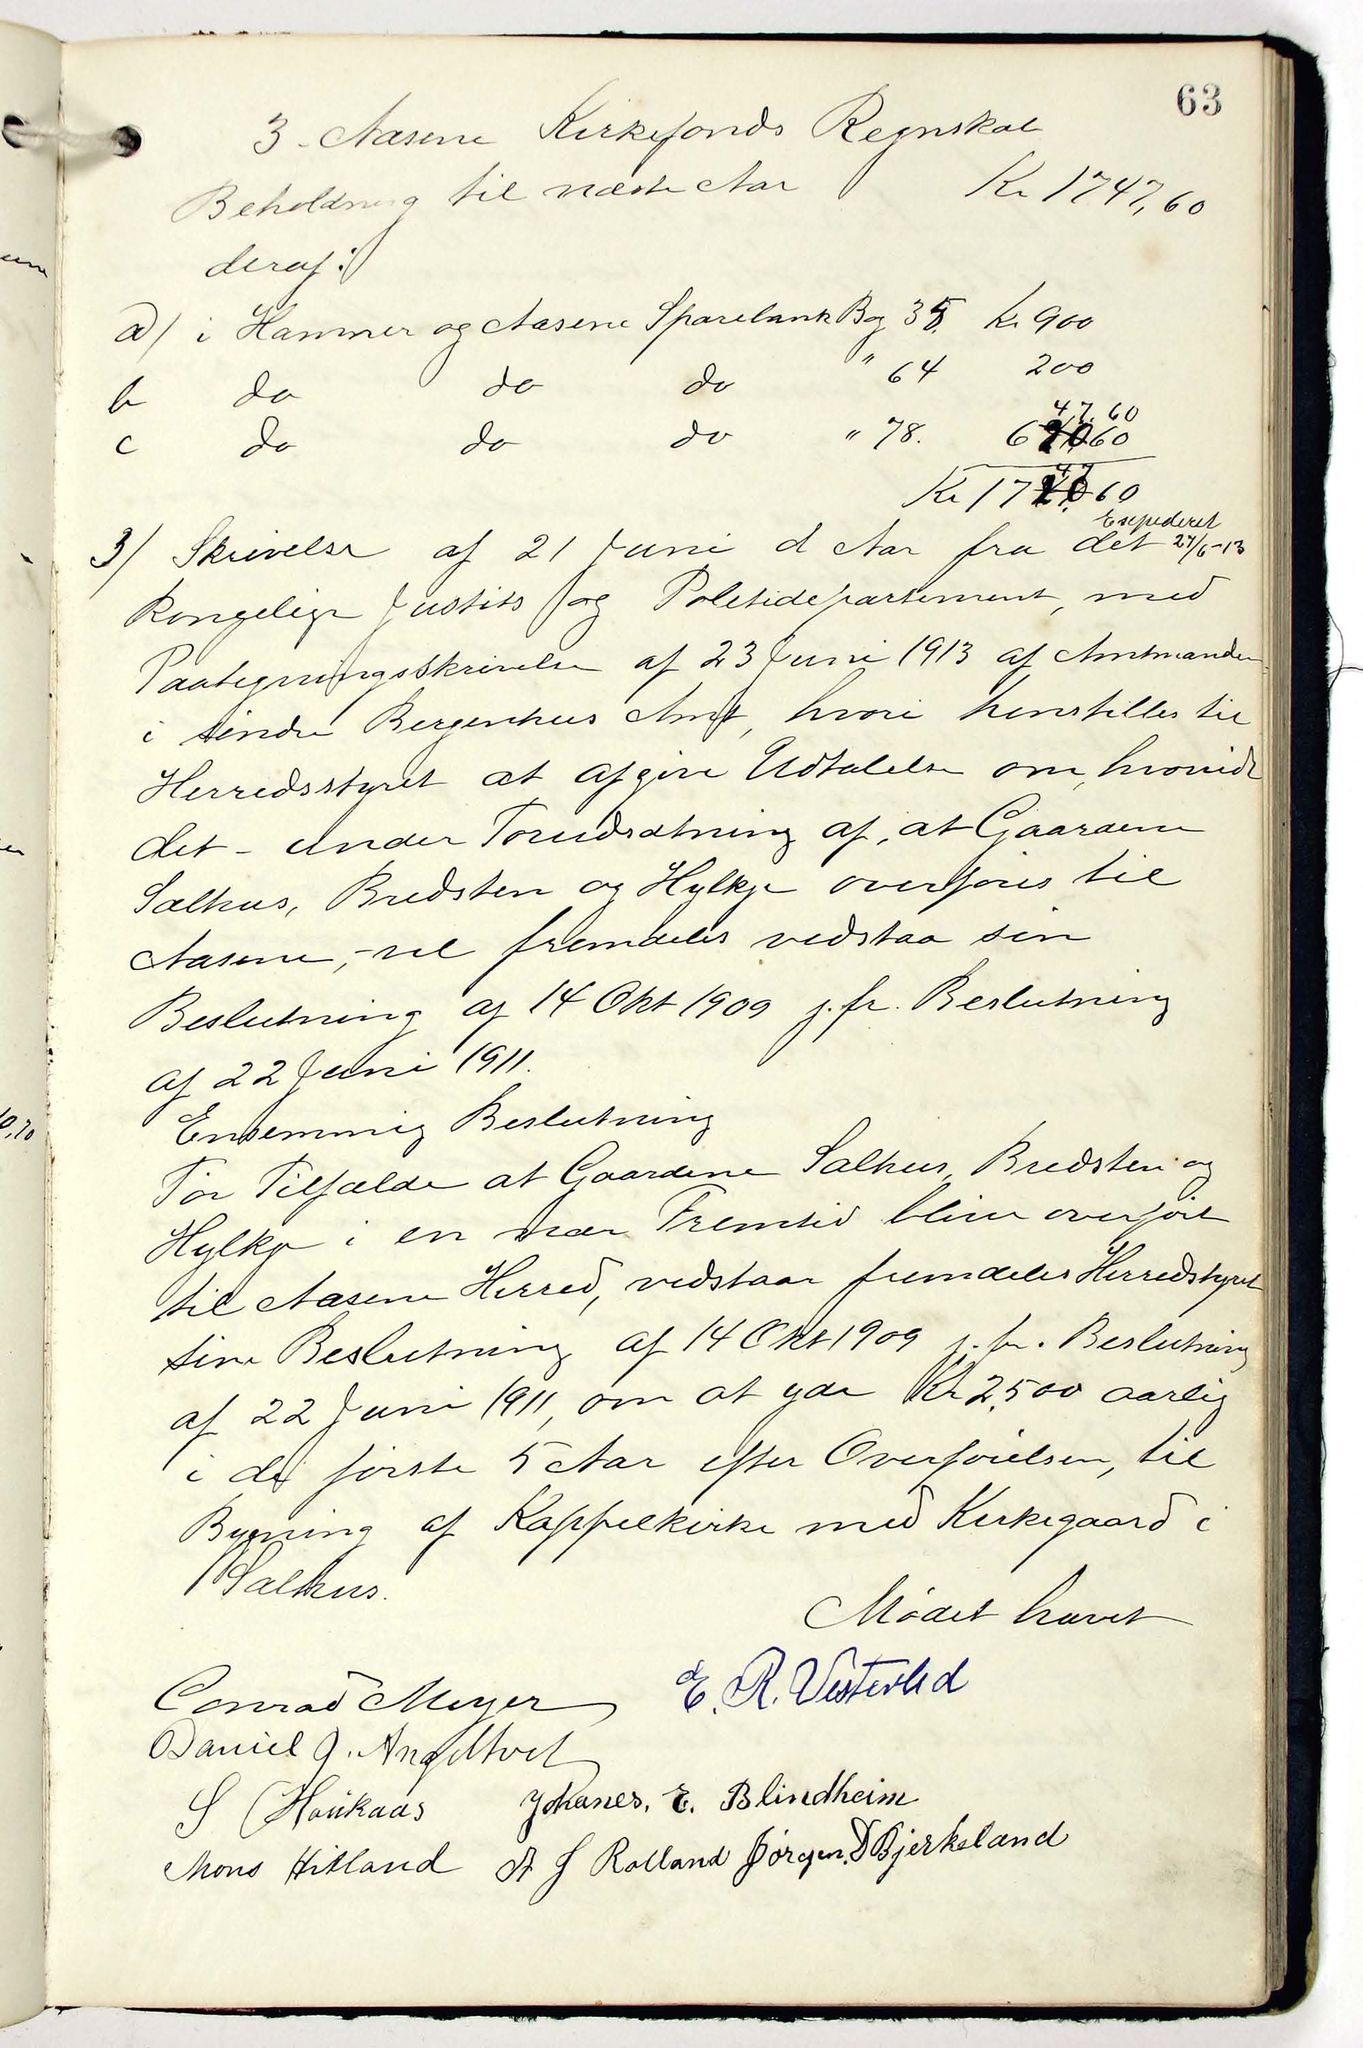 63
3 - Aasene Kirkefonds Regnskab
Beholdning til næste Aar Kr 1747,60
deraf:
a) i Hammer og Aasene Sparebank Bog 35, Kr 900
b do do do " 64 200
47.60
c do do do " 78. 620,60
47
Kr 1720,60
Expederet
3) Skrivelse af 21 Juni d Aar fra det 27/6-13
kongelige Justits og Politidepartement, med
Paategningsskrivelse af 23 Juni 1913 af Amtmanden
i søndre Bergenhus Amt, hvori henstilles til
Herredsstyret at afgive Udtalelse om, hvorvidt
det - under Forudsætning af, at Gaardene
Salhus, Bredsten og Hylkje overføres til
Aasene, - vil fremdeles vedstaa sin
Beslutning af 14 Okt 1909 j.fr. Beslutning
af 22 Juni 1911.
Enstemmig Beslutning
For Tilfælde at Gaardene Salhus, Bredsten og
Hylkje i en nær Fremtid bliver overført
til Aasene Herred, vedstaar fremdeles Herredstyret
sine Beslutning af 14 Okt 1909 j.fr. Beslutning
af 22 Juni 1911, om at yde Kr 2,500 aarlig
i de første 5 Aar efter Overførelsen, til
Bygning af Kappelkirke med Kirkegaard i
Salhus.
Mødet hævet
Conrad Meyer E. R. Vestrheid
Daniel J. Angeltveit
S Haukaas Johanes. E. Blindheim
Mons Hitland A J Rolland Jørgen. D Bjerkeland